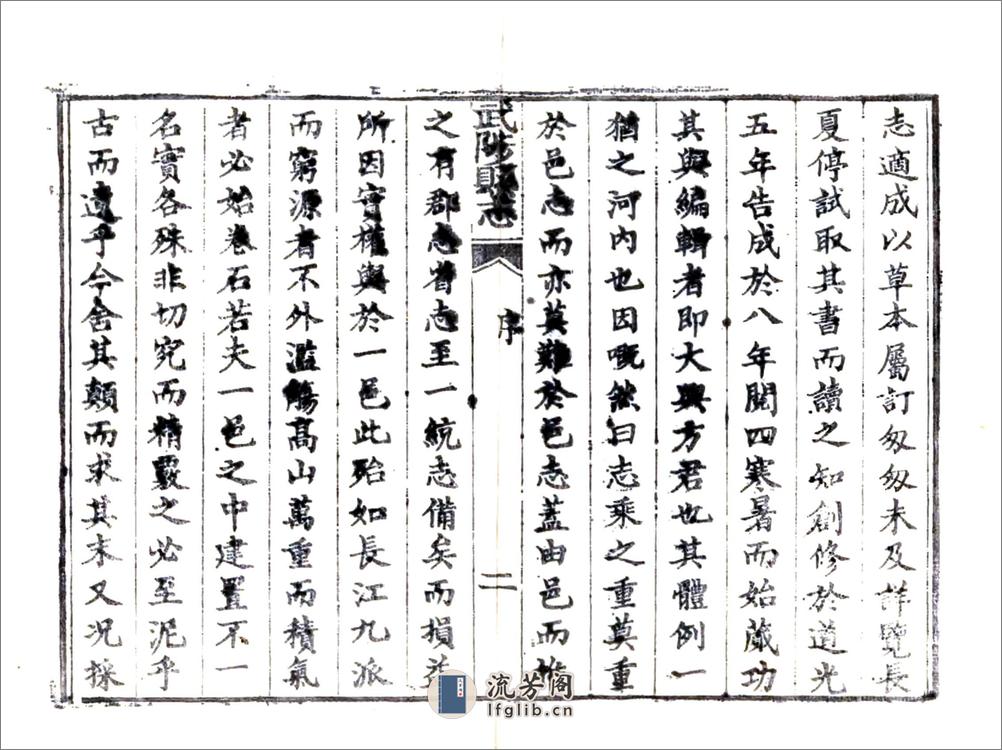 志適成以草本屬訂匆匆未及詳覽長
夏停試取其書而讀之知創修於道光
五年告成於八年閱四寒暑而始蕆功
其與編輯者即大興方君也其體例一
猶之河內也因嘅然曰志乘之重莫重
於邑志而亦莫難於邑志蓋由邑而推
武陟縣志
序
二
之有郡志省志至一統志備矣而損益
所因實權輿於一邑此殆如長江九派
而窮源者不外濫觴高山萬重而積氣
者必始卷石若夫一邑之中建置不一
名實各殊非切究而精覈之必至泥乎
古而遺乎今舍其顛而求其末又況採
流芳阁
lfglib.cn